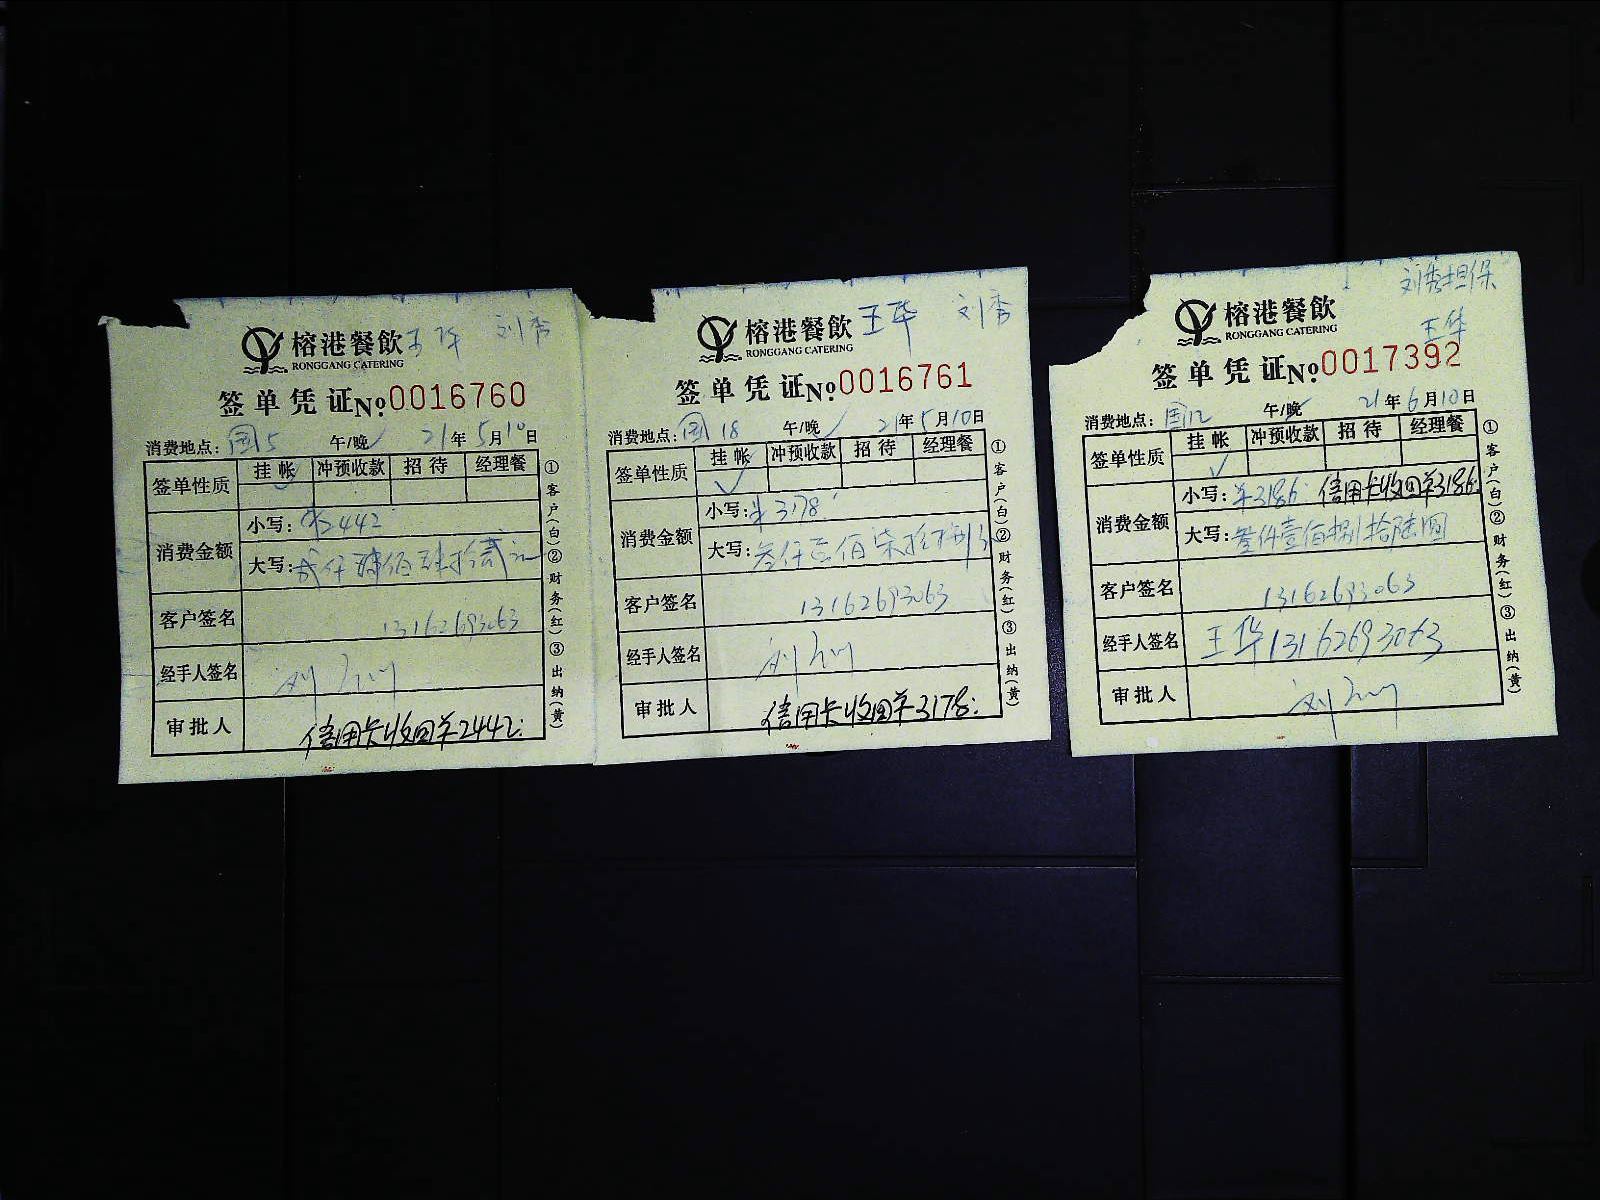 王华 刘秀
榕港餐飲
RONGGANG CATERING
签单凭证No.0016760
消费地点：国5 午/晚✓ 21年5月10日
签单性质 挂帐 冲预收款 招待 经理餐
✓
消费金额
小写：¥2442
大写：贰仟肆佰肆拾贰元
客户签名 13162693063
经手人签名
审批人 信用卡收回单2442.
①客户(白)②财务(红)③出纳(黄)
王华 刘秀
榕港餐飲
RONGGANG CATERING
签单凭证No.0016761
消费地点：国18 午/晚✓ 21年5月10日
签单性质 挂帐 冲预收款 招待 经理餐
✓
消费金额
小写：¥3178
大写：叁仟壹佰柒拾捌元
客户签名 13162693063
经手人签名
审批人 信用卡收回单3178.
①客户(白)②财务(红)③出纳(黄)
刘秀担保
王华
榕港餐飲
RONGGANG CATERING
签单凭证No.0017392
消费地点：国12 午/晚 21年6月10日
签单性质 挂帐 冲预收款 招待 经理餐
✓
消费金额
小写：¥3186 信用卡收回单3186.
大写：叁仟壹佰捌拾陆圆
客户签名 13162693063
经手人签名 王华13162693063
审批人
①客户(白)②财务(红)③出纳(黄)